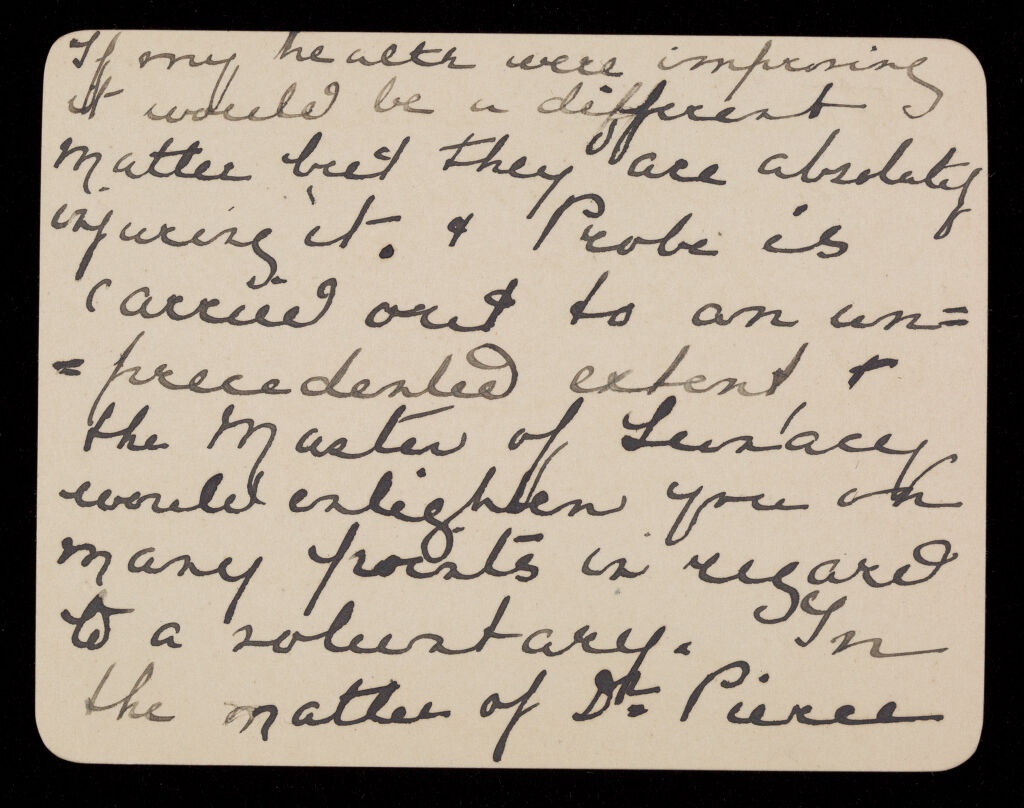 If my health were improving
it would be a different
matter but they are absolutely
injuring it. & Probe is
carried out to an un=
=precedented extent &
the Master of Lunacy
would enlighten you on
many points in regard
to a voluntary. In
the matter of Dr. Pierce